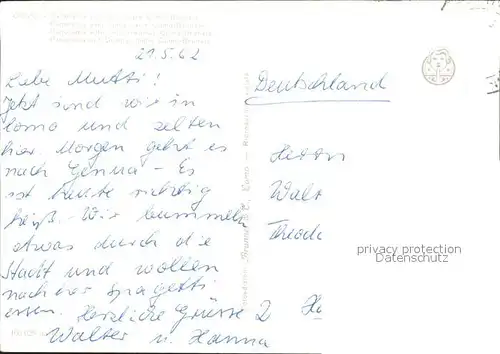 21.5.62
Liebe Mutti!
Jetzt sind wir in
Como und zelten
hier Morgen geht es
nach Genua - Es
ist heute richtig
heiß. Wir bummeln
etwas durch die
Stadt und wollen
nachher Spagetti
essen. Herzliche Grüsse
Walter u. Hanna
Deutschland
Herrn
Walt
Theod
2 Ha
privacy protection
Datenschutz